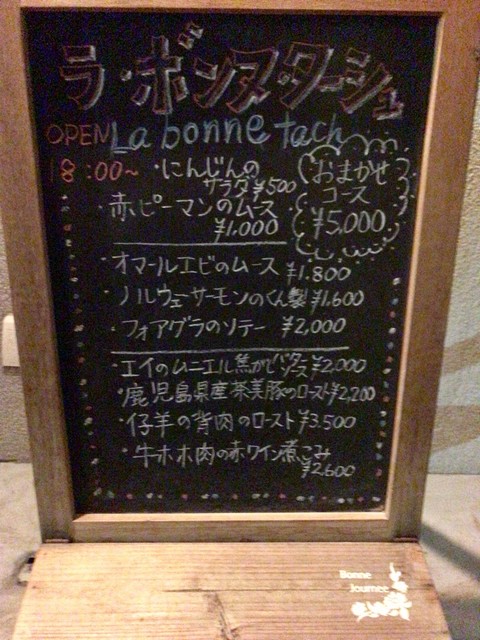 ラ・ボンヌ・ターシュ
La bonne tach
OPEN
18:00~
・にんじんの
サラダ ¥500
・赤ピーマンのムース
¥1,000
おまかせ
コース
¥5,000
・オマールエビのムース ¥1.800
・ノルウェサーモンのくん製 ¥1.600
・フォアグラのソテー ¥2,000
・エイのムニエル焦がしバターソース ¥2,000
・鹿児島県産茶美豚のロースト ¥2,200
・仔羊の背肉のロースト ¥3.500
・牛ホホ肉の赤ワイン煮こみ
¥2,600
Bonne
Journee